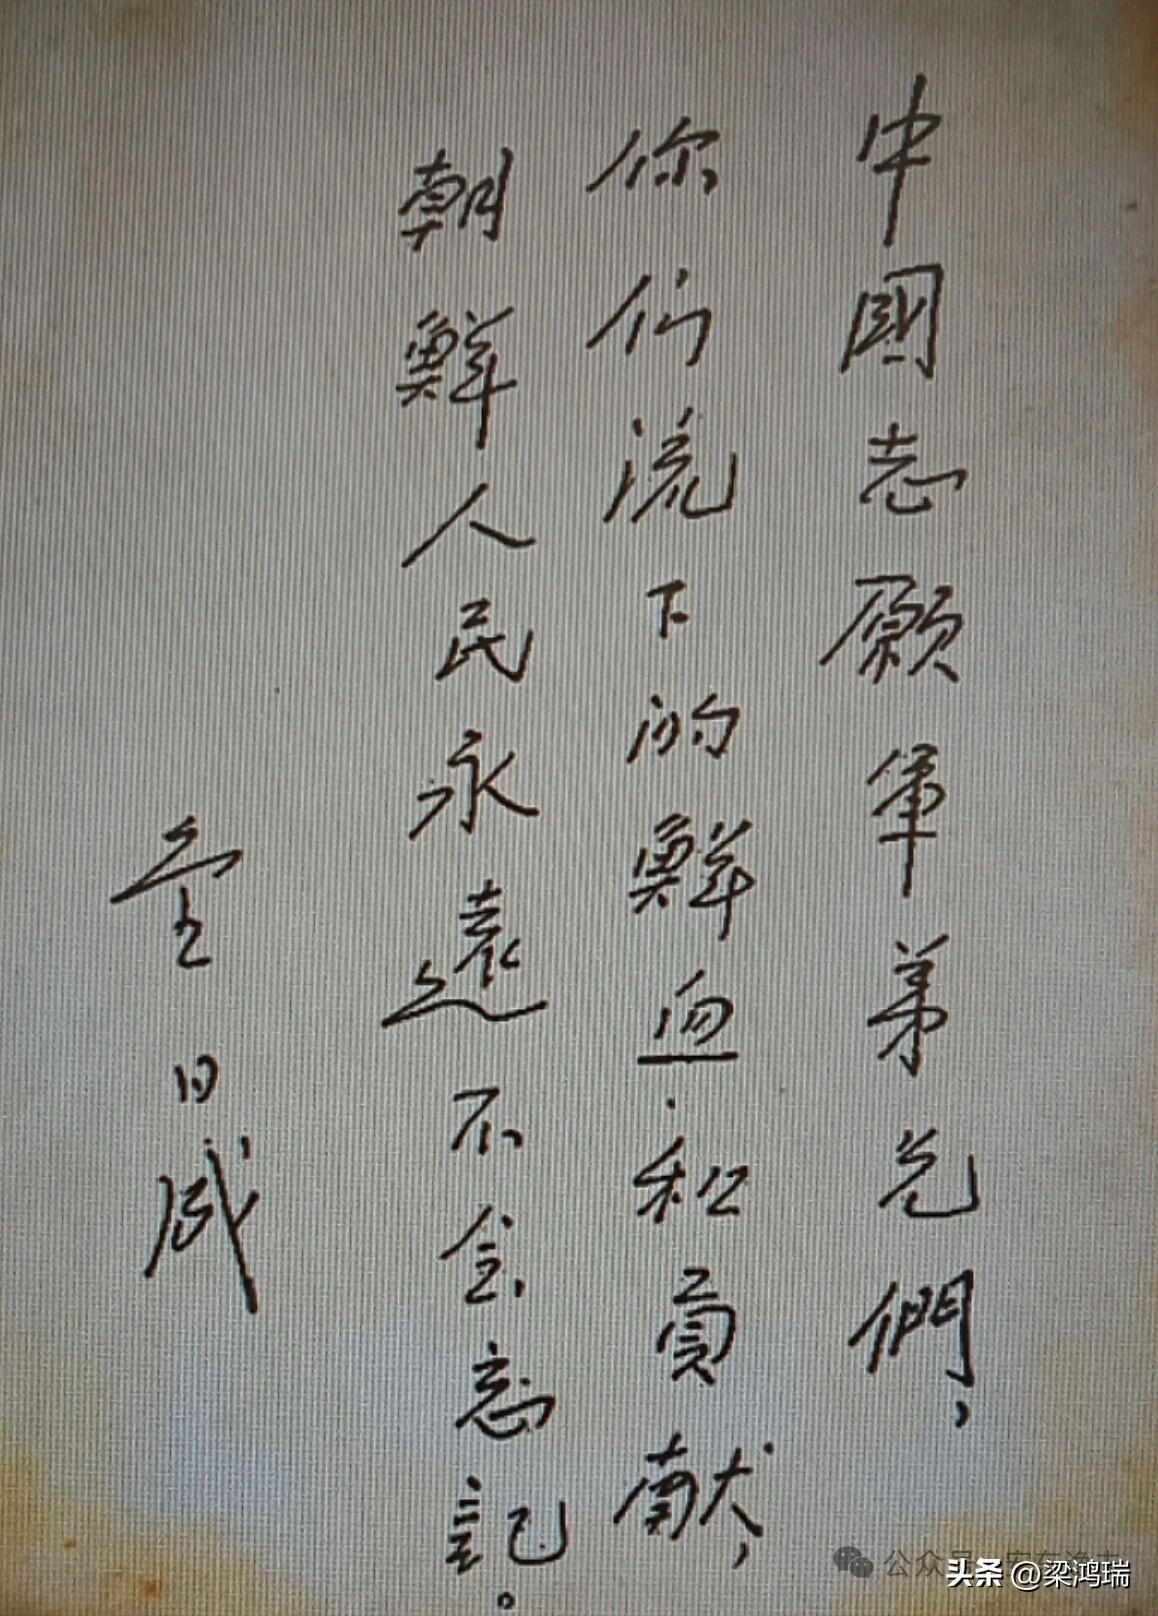 中國志願軍弟兄們，
你们流下的鮮血和貢献，
朝鮮人民永遠不会忘記。
金日成
公众号
头条 @梁鸿瑞